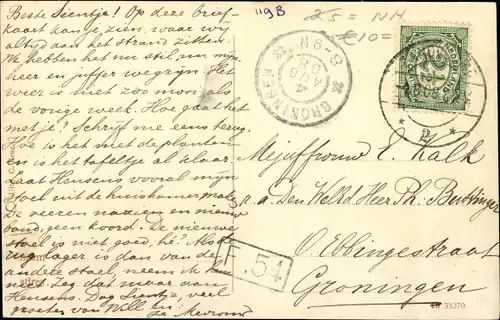 Beste Sientje! Op deze brief-
kaart kan je zien, waar wij
altijd aan het strand zitten.
We hebben het nu stil, nu mijn-
heer en juffer weg zijn. Het
weer is niet zoo mooi als
de vorige week. Hoe gaat het
met je? Schrijf me eens terug.
Hoe is het met de planten
en is het tafeltje al klaar.
Laat Hensens vooral mijn
stoel uit de huiskamer
De veeren nazien en nieuw
band, een koord. De nieuwe
stoel is niet goed, hè! Als de
rug lager is dan van de
andere stoel, neem ik hem
niet. Zeg dat maar aan
Hensens. Dag Sientje, veel
groeten van Willy en
Je Mevrouw
119B
25 = NH
€10=
GRONINGEN
4 AUG 08
8-9N
2
Mejuffrouw E. Kalk
a. a. den WelEd Heer Ph:
O. Ebbingestraat
Groningen
F. 54
39270